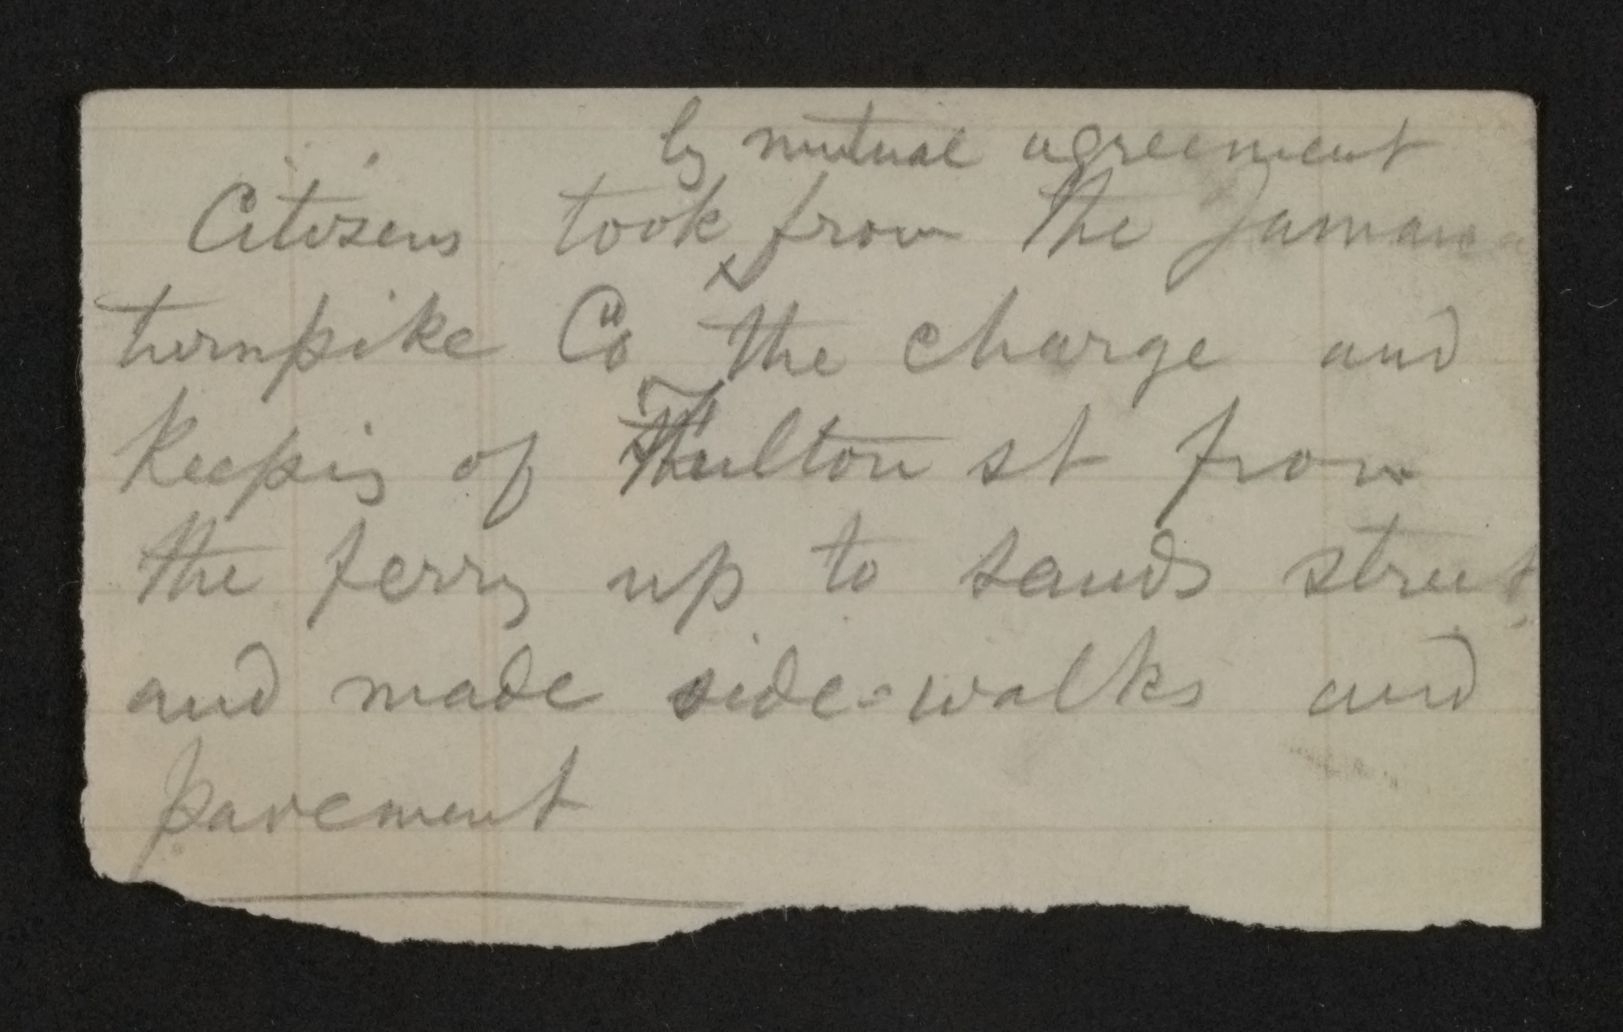 by mutual agreement
Citizens took from the Jamaica
turnpike Co the charge and
Keeping of Fulton st from
the ferry up to sands street,
and made side-walks and
pavement